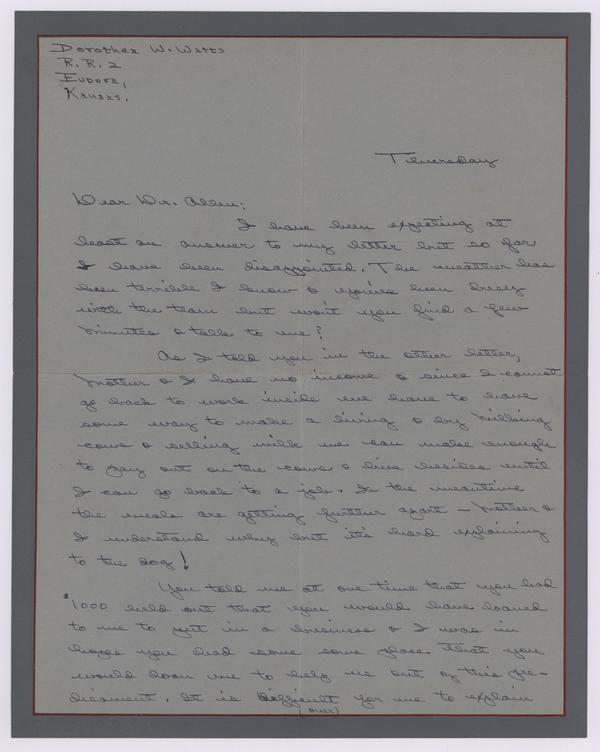 Dorothea W. Watts
R. R. 2
Eudora,
Kansas.
Thursday
Dear Dr. Allen:
I have been expecting at
least an answer to my letter but so far
I have been disappointed. The weather has
been terrible I know & you've been busy
with the team but won't you find a few
minutes & talk to me?
As I told you in the other letter,
Mother & I have no income & since I cannot
go back to work inside we have to have
some way to make a living & by milking
cows & selling milk we can make enough
to pay out on the cows & live besides until
I can go back to a job. In the meantime
the meals are getting further apart - Mother &
I understand why but it's hard explaining
to the dog!
You told me at one time that you had
$1000 held out that you would have loaned
to me to put in a business & I was in
hopes you had some some place that you
would loan me to help us out of this pre-
dicament. It is difficult for me to explain
(over)